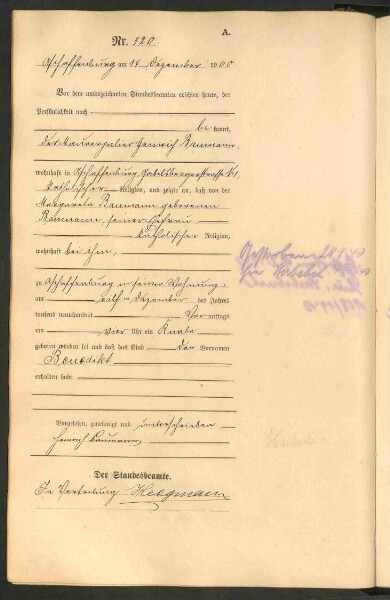 A.
Nr. 520
Aschaffenburg am 14 Dezember 1900
Vor dem unterzeichneten Standesbeamten erschien heute, der
Persönlichkeit nach
be kannt,
der Maurerpalier Heinrich Baumann
wohnhaft in Aschaffenburg Gabelsbergerstraße
katholischer Religion, und zeigte an, daß von der
Margareta Baumann geborenen
Baumann, seiner Ehefrau
katholischer Religion,
wohnhaft bei ihm,
zu Aschaffenburg in seiner Wohnung,
am elften Dezember des Jahres
tausend neunhundert Vor mittags
um vier Uhr ein Knabe
geboren worden sei und daß das Kind den Vornamen
Benedikt
erhalten habe
Vorgelesen, genehmigt und unterschrieben
Heinrich Baumann
Der Standesbeamte.
In Vertretung
Gestorben